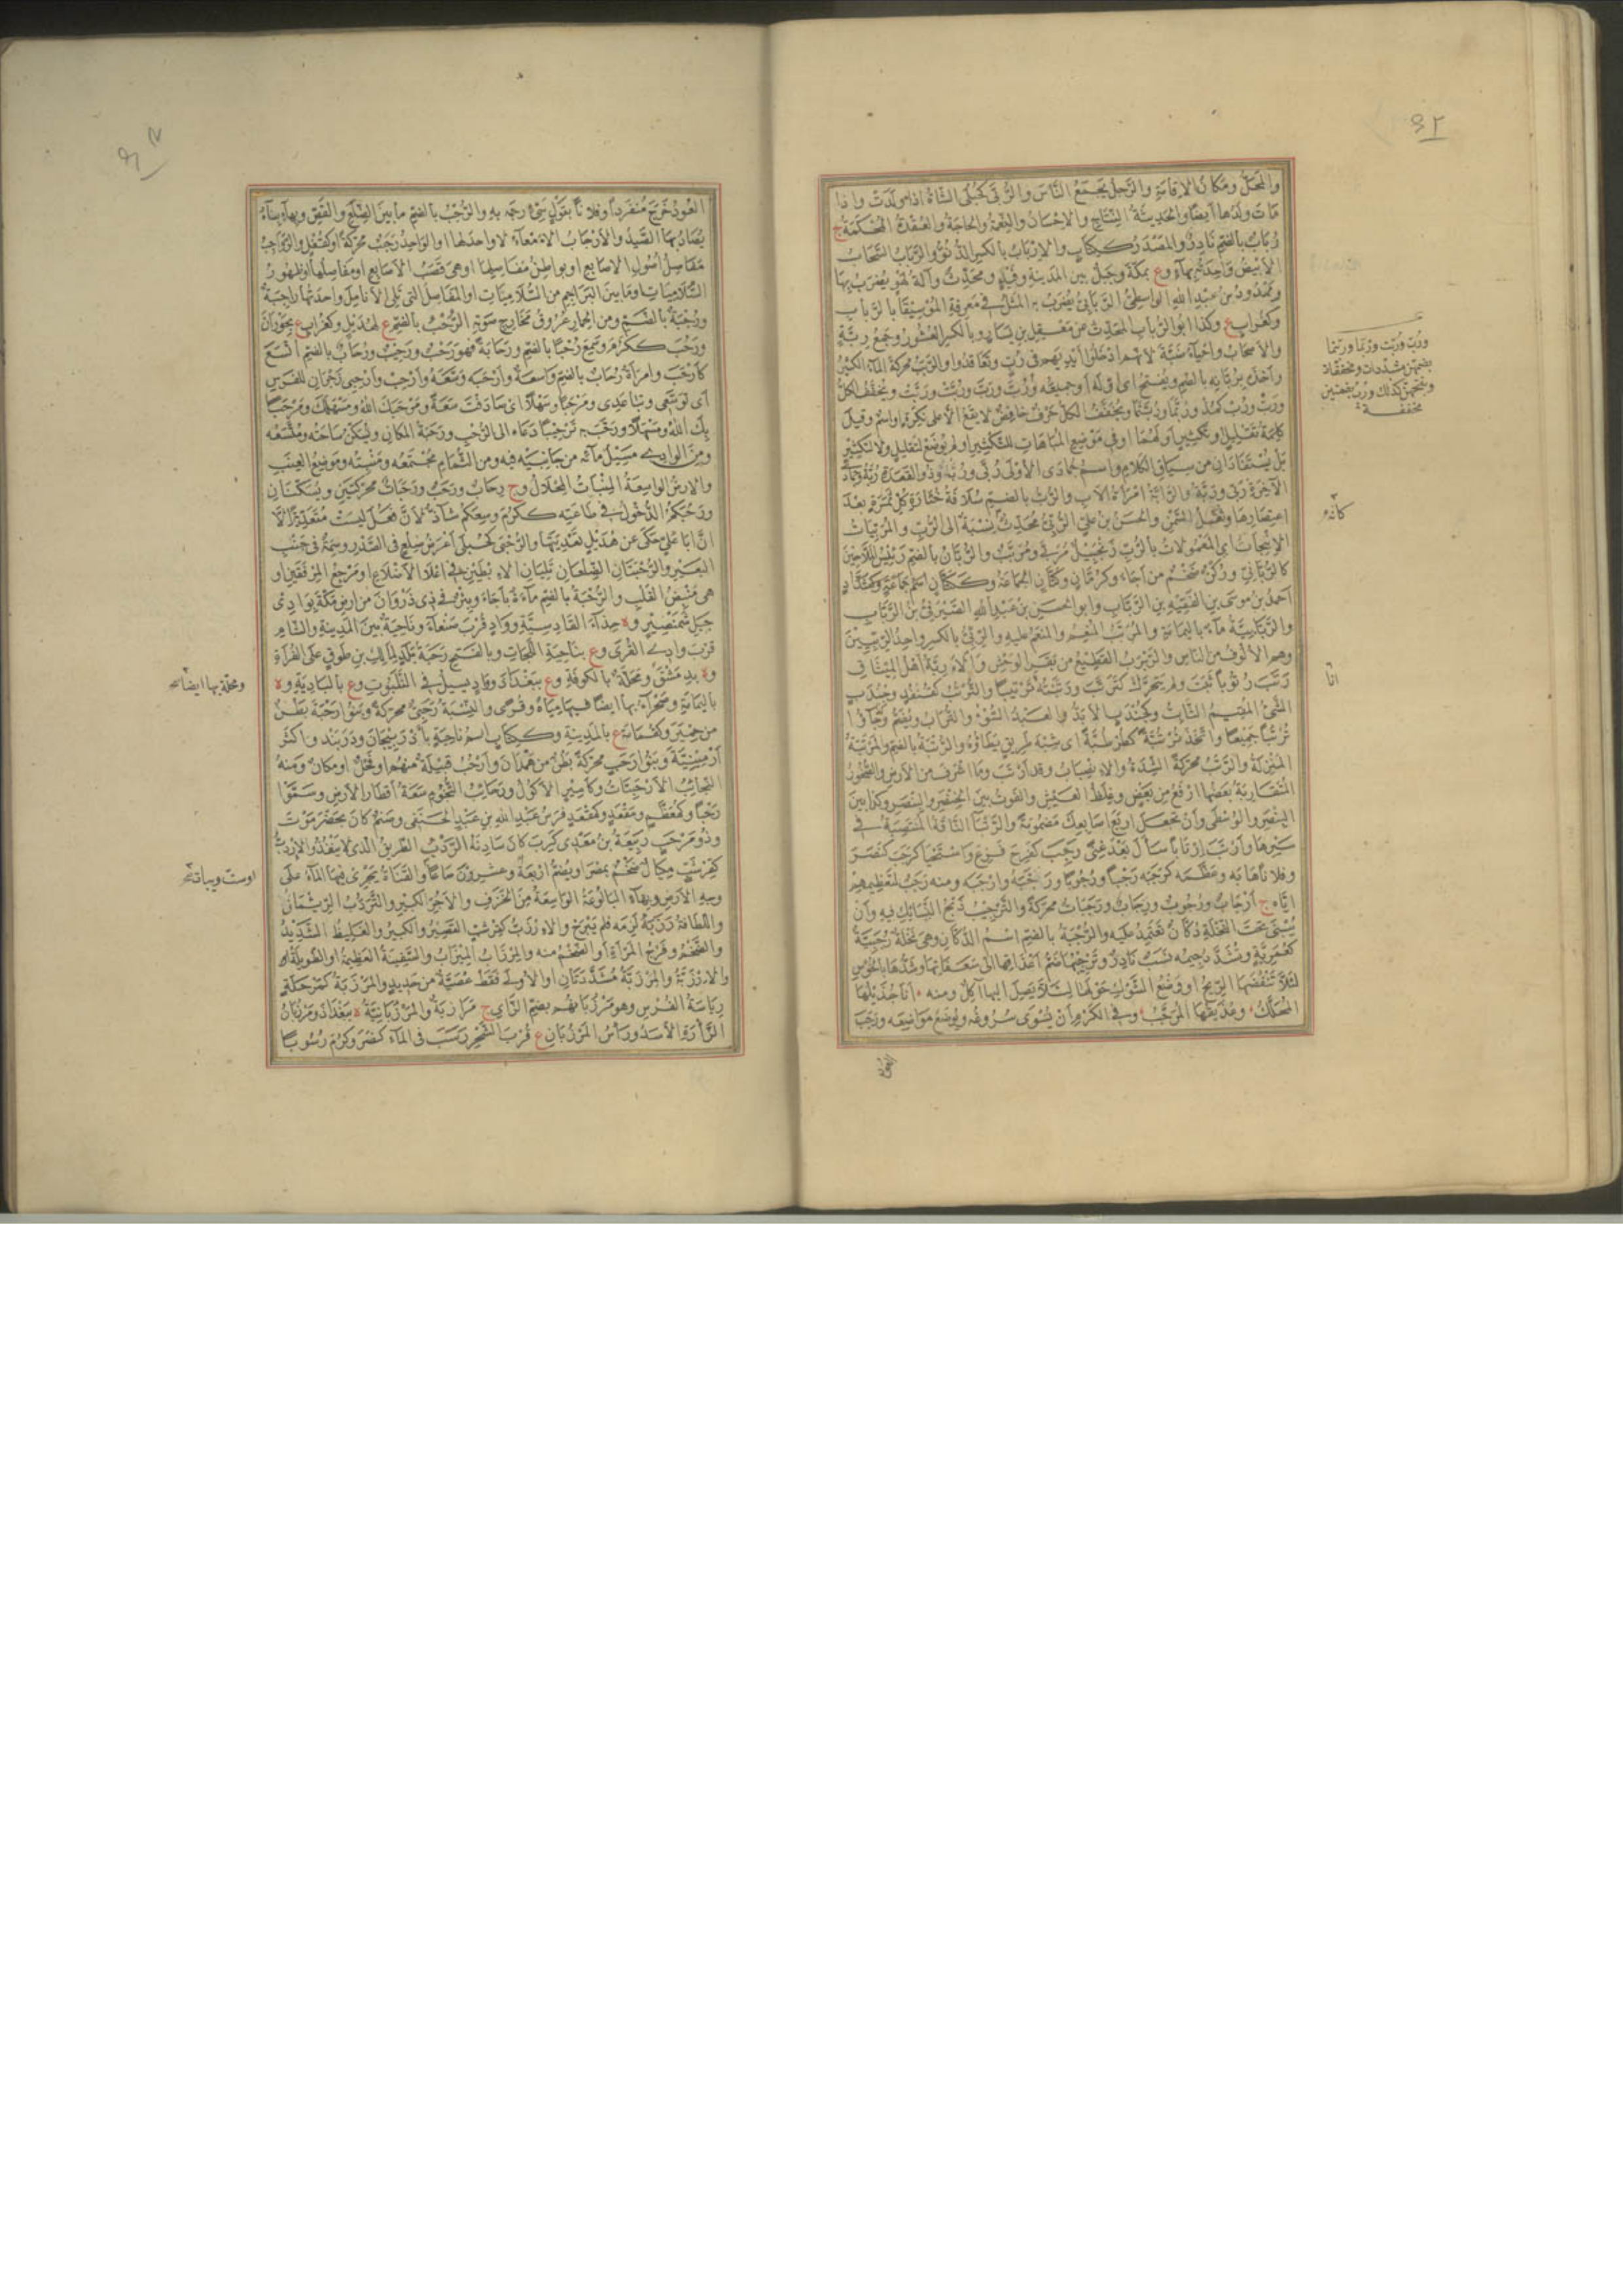 ٤٢
والمحل ومكان الاقامة والرجل يجمع الناس والربى كحبلى الشاة اذا ولدت واذا
مات ولدها ايضا والحديثة النتاج والاحسان والنعمة والحاجة والعقدة المحكمة ج
رباب بالضم نادر والمصدر ككتاب والارباب بالكسر الدنو والرباب السحاب
الابيض واحدته بهاء وع بمكة وجبل بين المدينة وفيد ومحدث وآلة لهو يضرب بها
وممدود بن عبد الله الواسطى الربابى يضرب به المثل فى معرفة الموسيقا بالرباب
وكغراب ع وكذا ابو الرباب المحدث عن معقل بن يسار وبالكسر العشور وجمع ربة
والاصحاب واحياء ضبة لانهم ادخلوا ايديهم فى رب وتعاقدوا والربب محركة الماء الكثير
واخذه بربانه بالضم ويفتح اى اوله او جميعه ورب ورب وربت وربت ويخفف الكل
ورب ورب كمذ وربما وربتما ويخفف الكل حرف خافض لا يقع الا على نكرة او اسم وقيل
كلمة تقليل وتكثير او لهما او فى موضع المباهات للتكثير او لم يوضع لتقليل ولا تكثير
بل يستفادان من سياق الكلام واسم جمادى الاولى ربى ورب وذو القعدة ربة
الآخرة ربى وربة والرابة امرأة الاب والرب بالضم سلافة خثارة كل ثمرة بعد
اعتصارها وثفل السمن والحسن بن على الربى محدث نسبة الى الرب والمربيات
الانبجات اى المعمولات بالرب زنجبيل مربى ومربب والربان بالضم رئيس الملاحين
كالربانى وركن ضخم من اجاء وكرمان وكتان الجماعة وككتان اسم جماعة وكشداد
احمد بن موسى بن الفقيه بن الرباب وابو الحسين بن عبد الله الصيرفى بن الرباب
والربابية ماء باليمامة والمربب المنعم والمنعم عليه والربى بالكسر واحد الربيين
وهم الالوف من الناس والربرب القطيع من بقر الوحش
رتب رتوبا ثبت ولم يتحرك كترتب ورتبته ترتيبا والترتب كقنفذ وجندب
الشئ المقيم الثابت وكجندب الابد والعبد السوء والتراب ويضم
المنزلة والرتب محركة الشدة والانصباب وقد ارتب وما اشرف من الارض والصخور
المتقاربة بعضها ارفع من بعض وغلظ العيش والفوت بين الخنصر والبنصر وكذا بين
البنصر والوسطى وان تجعل اربع اصابعك مضمومة والرتباء الناقة المنتصبة فى
سيرها وارتب ارتابا سأل بعد غنى رجب كفرح فزع واستحيا كرجب كنصر
وفلانا هابه وعظمه كرجبه رجبا ورجوبا ورجبه وارجبه ومنه رجب لتعظيمهم
اياه ج ارجاب ورجوب ورجاب ورجبات محركة والترجيب ذبح النسائك فيه وان
يبنى تحت النخلة دكان تعتمد عليه والرجبة بالضم اسم الدكان وهى نخلة رجبية
كعمرية وتشدد جيمه نسب نادر وترجيبها ضم اعذاقها الى سعفاتها وشدها بالخوص
لئلا تنفضها الريح او وضع الشوك حولها لئلا يصل اليها آكل ومنه انا جذيلها
المحكك وعذيقها المرجب وفى الكرم ان تسوى سروغه ويوضع مواضعه ورجب
العود
ورب وربت وربما وربتما
بضمهن مشددات ومخففات
وبفتحهن كذلك ورب بضمتين
مخففة
كانه
انا
العود خرج منفردا وفلانا بقول سئ رجمه به والرجب بالضم ما بين الضلع والقص وبهاء بناء
يصاد بها الصيد والارجاب الامعاء لا واحد لها او الواحد رجب محركة او كقفل والرواجب
مفاصل اصول الاصابع او بواطن مفاصلها او هى قصب الاصابع او مفاصلها او ظهور
السلاميات او ما بين البراجم من السلاميات او المفاصل التى تلى الانامل واحدتها راجبة
ورجبة بالضم ومن الحمار عروق مخارج صوته الرحب بالضم ع لهذيل وكغراب ع بحوران
ورحب ككرم وسمع رحبا بالضم ورحابة فهو رحب ورحيب ورحاب بالضم اتسع
كارحب وامرأة رحاب بالضم واسعة وارحبه وسعه وارحب وارحبى زجران للفرس
اى توسعى وتباعدى ومرحبا وسهلا اى صادفت سعة ومرحبك الله ومسهلك ومرحبا
بك الله ومسهلا ورحب به ترحيبا دعاه الى الرحب ورحبة المكان وتسكن ساحته ومتسعه
ومن الوادى مسيل مائه من جانبيه فيه ومن الثمام مجتمعه ومنبته وموضع العنب
والارض الواسعة المنبات المحلال وج رحاب ورحب ورحبات محركتين ويسكنان
ورحبكم الدخول فى طاعته ككرم وسعكم شاذ لان فعل ليست متعدية الا
ان ابا على حكى عن هذيل تعديتها والرحبى كحبلى اعرض ضلع فى الصدر وسمة فى جنب
البعير والرحبيان الضلعان تليان الابطين فى اعلا الاضلاع او مرجع المرفقين او
هى منبض القلب والرحبة بالضم ماءة باجاء وبئر فى ذى ذروان من ارض مكة بوادى
جبل شمنصير وة حذاء القادسية وواد قرب صنعاء وناحية بين المدينة والشام
قرب وادى القرى وع بناحية اللجاة وبالفتح رحبة مالك بن طوق على الفراة
وة بدمشق ومحلة بالكوفة وع ببغداد وواد يسيل فى الثلبوت وع بالبادية وة
باليمامة وصحراء بها ايضا فيها مياه وقرى والنسبة رحبى محركة وبنو رحبة بطن
من حمير وكقمامة ع بالمدينة وككتاب اسم ناحية باذربيجان ودربند واكثر
ارمينية وبنو ارحب محركة بطن من همدان وارحب قبيلة منهم او فحل او مكان ومنه
النجائب الارحبيات وكامير الاكول ورحائب التخوم سعة اقطار الارض وسموا
رحبا وكمعظم ومقعد وكمقعد فرس عبد الله بن عبد الحنفى وصنم كان بحضرموت
وذو مرحب ربيعة بن معدى كرب كان سادنه الردب الطريق الذى لا ينفذ والاردب
كقرشب مكيال ضخم بمصر ويضم اربعة وعشرون صاعا والقناة يجرى فيها الماء على
وجه الارض وبهاء البالوعة الواسعة من الخزف والاجر الكبير والتردب الرئمان
واللطافة رزب لزمه فلم يبرح والارزب كقرشب القصير والكبير والغليظ الشديد
والضخم وفرج المرأة او الضخم منه والمرزاب الميزاب والسفينة العظيمة او الطويلة
والارزبة والمرزبة مشددتان او الاولى فقط عصية من حديد والمرزبة كمرحلة
رياسة الفرس وهو مرزبانهم بضم الزاى ج مرازبة والمرزبانية ة ببغداد ومرزبان
الزأرة الاسد ورأس المرزبان ع قرب الشحر رسب فى الماء كنصر وكرم رسوبا
ومحلة بها ايضا صح
اوست ويبات صح